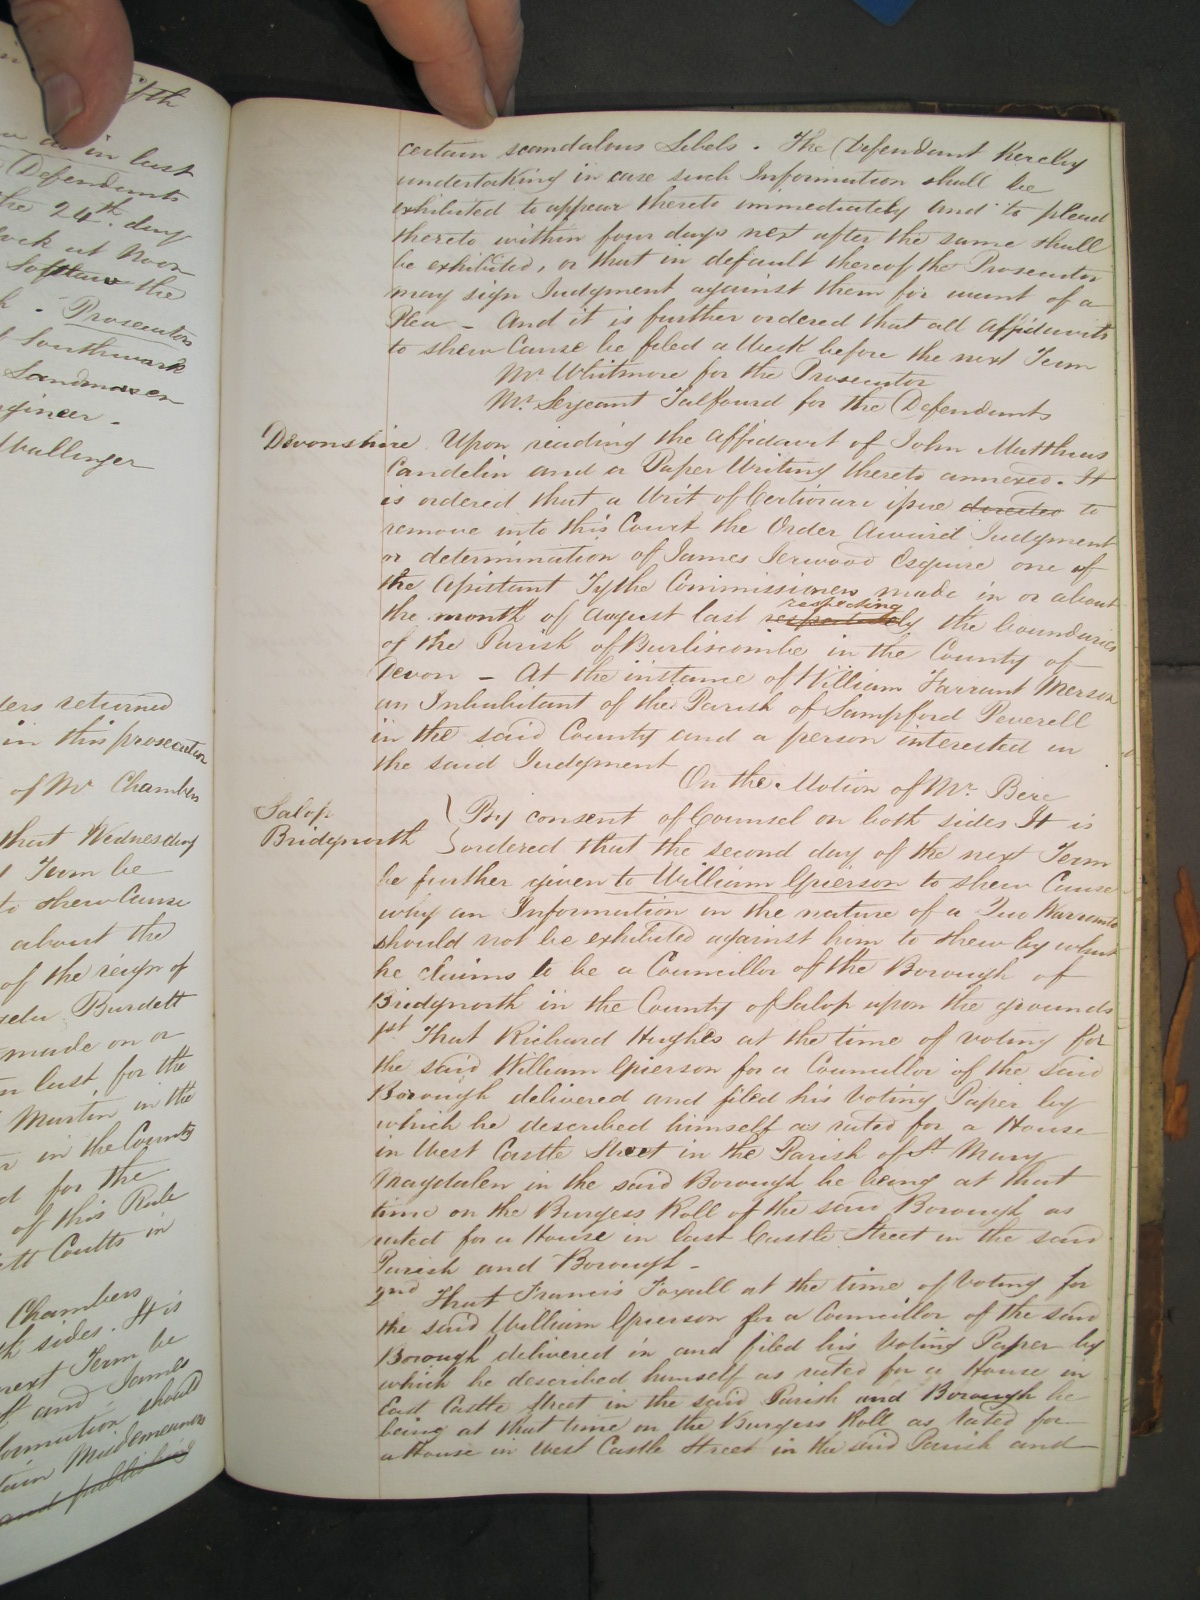 fifth
as in last
Defendants
the 24th day
at Noon
the
Prosecutors
Southwark
Sandmasen
Mullinger
returned
in this prosecution
of Mr Chambers
that Wednesday
Term be
to shew Cause
about the
of the reign of
Burdett
made on or
last for the
Martin in the
in the County
for the
of this Rule
Coutts in
Chambers
sides. It is
next Term be
and James
should
Misdemeanors
and published
certain scandalous Libels. The Defendant hereby
undertaking in case such Information shall be
exhibited to appear thereto immediately and to plead
thereto within four days next after the same shall
be exhibited, or that in default thereof the Prosecutor
may sign Judgment against them for want of a
Plea – And it is further ordered that all affidavits
to shew Cause be filed a Week before the next Term
Mr. Whitmore for the Prosecutor
Mr. Serjeant Talfourd for the Defendants
Devonshire Upon reading the affidavit of John Matthias
Candelin and a Paper Writing thereto annexed. It
is ordered that a Writ of Certiorari issue directed to
remove into this Court the Order Award Judgment
or determination of James Jerwood Esquire one of
the Assistant Tythe Commissioners made in or about
the month of August last respecting the boundaries
of the Parish of Burliscombe in the County of
Devon – At the instance of William Farrant Merson
an Inhabitant of the Parish of Sampford Peverell
in the said County and a person interested in
the said Judgment
On the Motion of Mr. Bere
Salop
Bridgnorth
By consent of Counsel on both sides It is
ordered that the second day of the next Term
be further given to William Grierson to shew Cause
why an Information in the nature of a Quo Warranto
should not be exhibited against him to shew by what
he claims to be a Councillor of the Borough of
Bridgnorth in the County of Salop upon the grounds
1st That Richard Hughes at the time of voting for
the said William Grierson for a Councillor of the said
Borough delivered and filed his Voting Paper by
which he described himself as rated for a House
in West Castle Street in the Parish of St Mary
Magdalen in the said Borough he being at that
time on the Burgess Roll of the said Borough as
rated for a House in East Castle Street in the said
Parish and Borough –
2nd That Francis Foxall at the time of Voting for
the said William Grierson for a Councillor of the said
Borough delivered in and filed his Voting Paper by
which he described himself as rated for a House in
East Castle Street in the said Parish and Borough he
being at that time on the Burgess Roll as rated for
a House in West Castle Street in the said Parish and